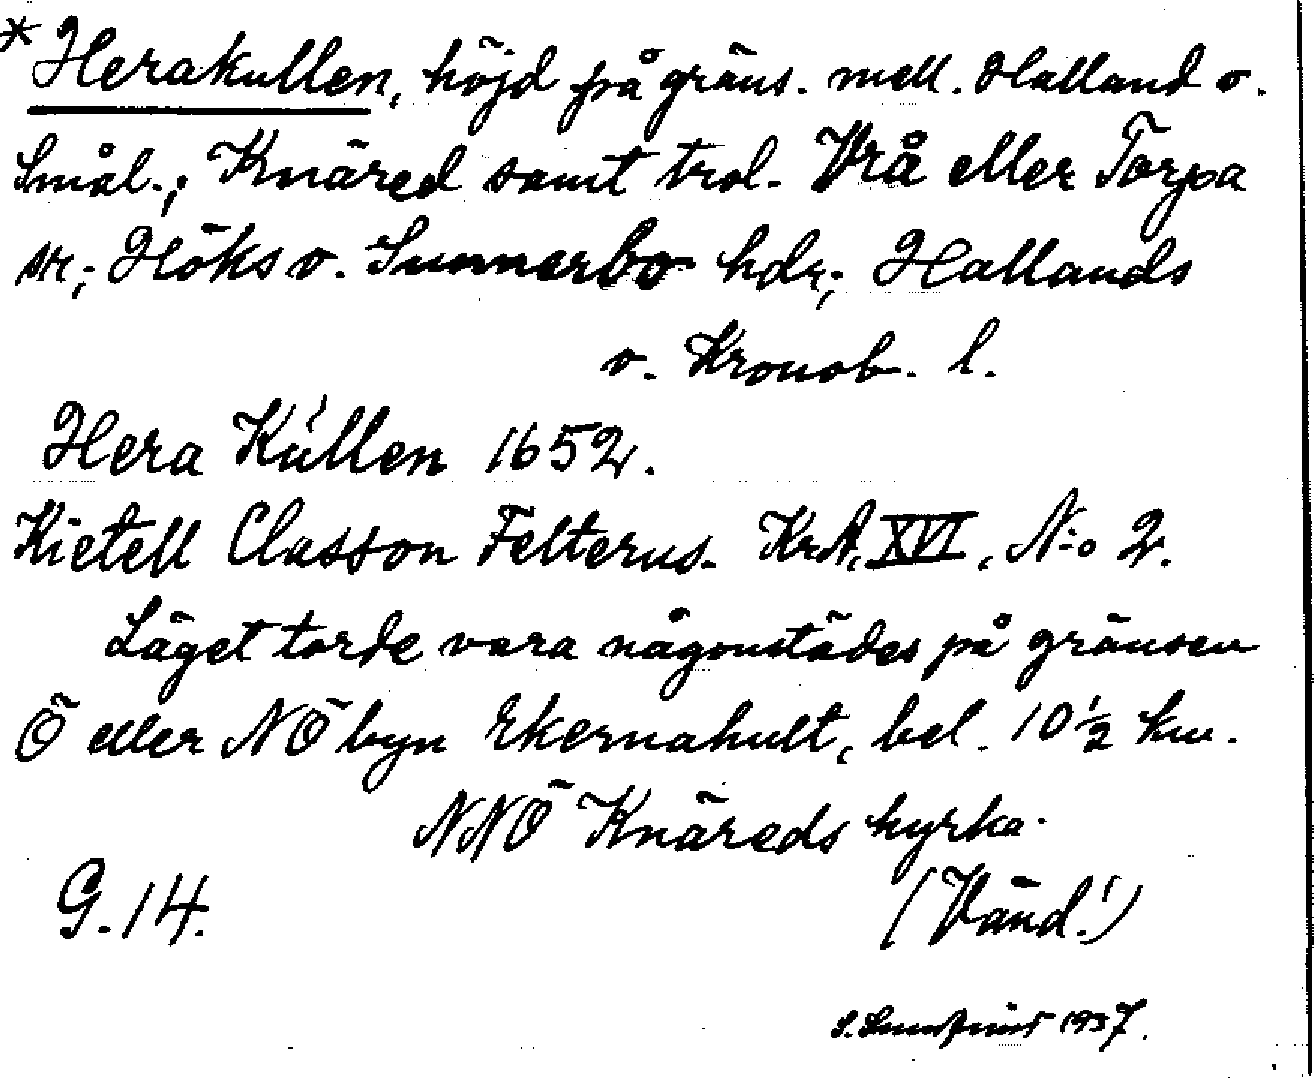 *Herakullen, höjd på gräns. mell. Halland o.
Smål.; Knäred samt trol. Vrå eller Torpa
sn; Höks o. Sunnerbo hdr; Hallands
o. Kronob. l.
Hera Kullen 1652.
Kietell Classon Felterus. KrA, XVI, N:o 2.
Läget torde vara någonstädes på gränsen
Ö eller NÖ byn Ekernahult, bel. 10 1/2 km.
NNÖ Knäreds kyrka.
G. 14.
(Vänd!)
S. 1937.